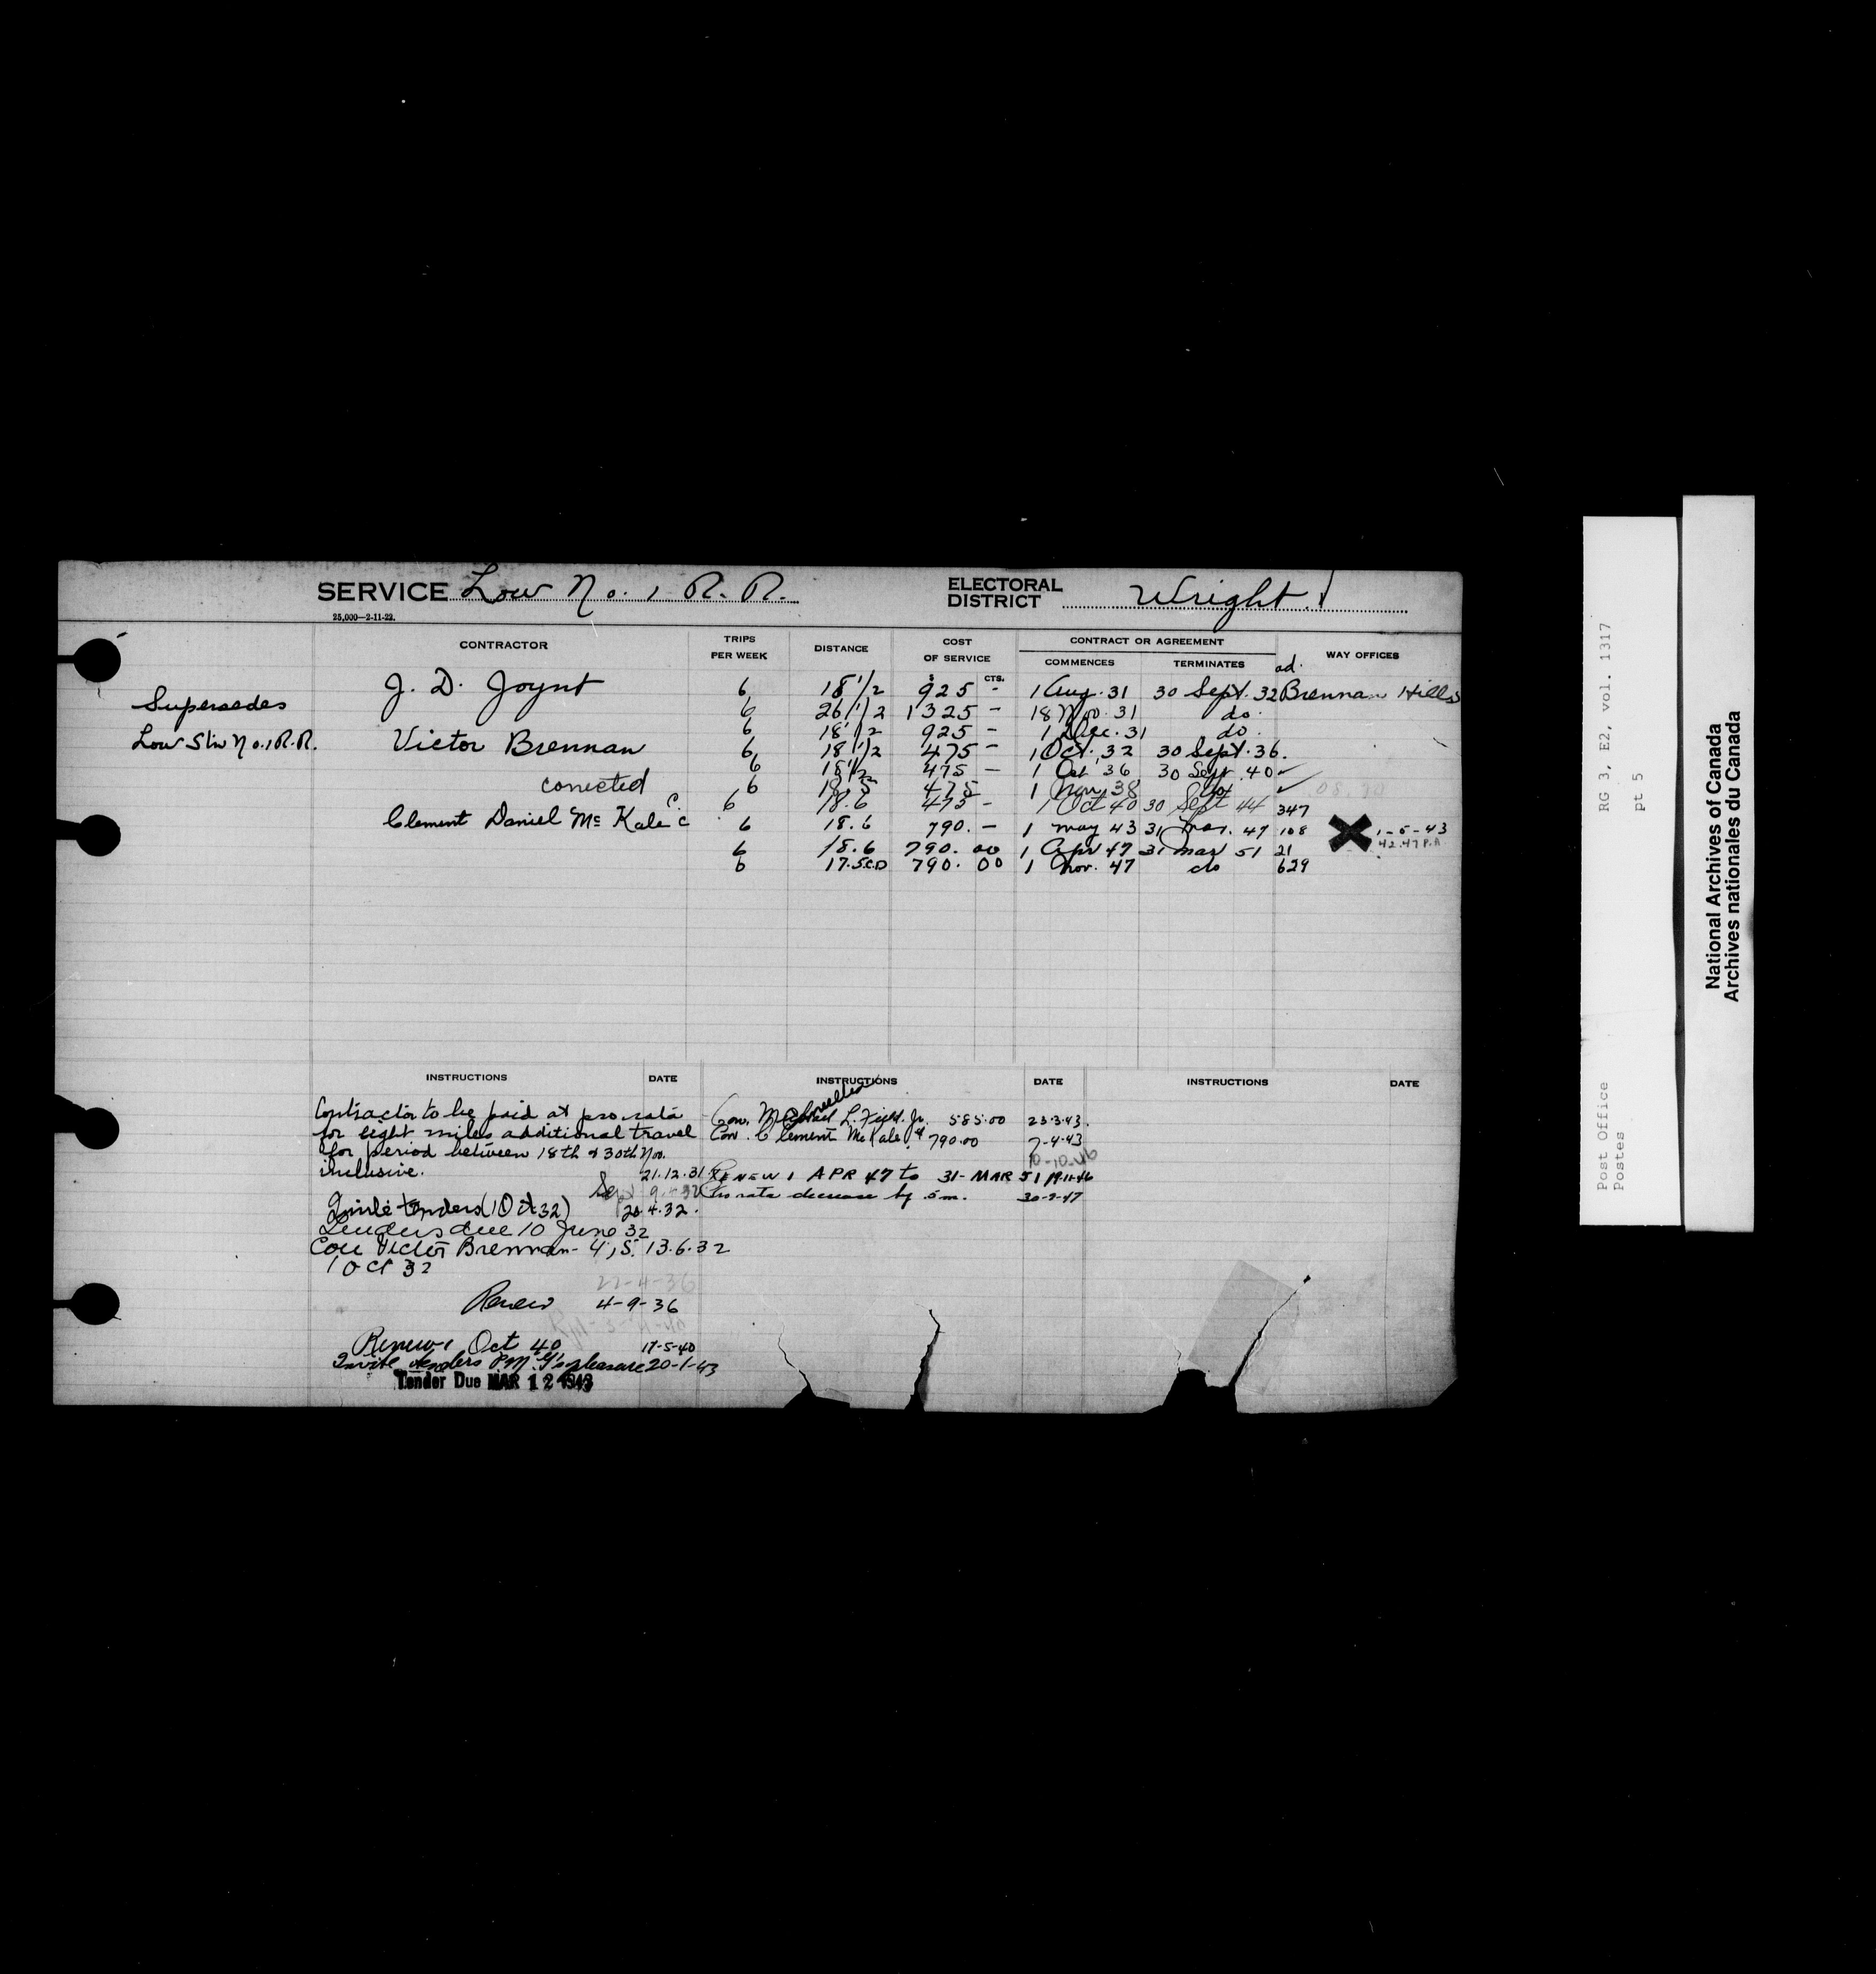 SERVICE Low No. 1 R. R. ELECTORAL DISTRICT Wright
25,000—2-11-22.
CONTRACTOR TRIPS PER WEEK DISTANCE COST OF SERVICE CONTRACT OR AGREEMENT COMMENCES TERMINATES WAY OFFICES
$ CTS.
ad.
J. D. Joynt 6 18 1/2 925 - 1 Aug. 31 30 Sept. 32 Brennan Hills
Supersedes 6 26 1/2 1325 - 18 Nov. 31 do.
6 18 1/2 925 - 1 Dec. 31 do.
Low Stn No. 1 R.R. Victor Brennan 6 18 1/2 475 - 1 Oct. 32 30 Sept. 36.
6 18 1/2 475 - 1 Oct 36 30 Sept. 40
corrected 6 18.5 475 1 Nov 38 do
6 18.6 475 - 1 Oct 40 30 Sept 44 347
Clement Daniel Mc Kale 6 18.6 790. - 1 May 43 31 Mar. 47 108 1-5-43
6 18.6 790. 00 1 Apr 47 31 Mar 51 21 42.47 P.A
6 17.5 790. 00 1 Nov. 47 do 629
INSTRUCTIONS DATE INSTRUCTIONS DATE INSTRUCTIONS DATE
Contractor to be paid at pro rata
for eight miles additional travel
for period between 18th & 30th Nov.
inclusive. 21.12.31
Invite tenders (1 Oct 32) 20.4.32.
Tenders due 10 June 32
Con Victor Brennan - 475. 13.6.32
1 Oct 32
22-4-36
Renew 4-9-36
Renew 1 Oct 40 17-5-40
Invite tenders P.M.G's pleasure 20-1-43
Tender Due MAR 12 1943
Cancelled
Con. L. Jr. 585.00 23.3.43.
Con. Clement Mc Kale 790.00 7-4-43
10-10-46
RENEW 1 APR 47 to 31-MAR 51 19-11-46
Pro rata decrease by .5 m.
National Archives of Canada
Archives nationales du Canada
RG 3, E2, vol. 1317
pt 5
Post Office
Postes